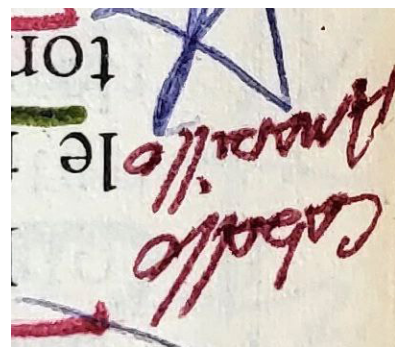 Caballo
Amarillo
le
ton